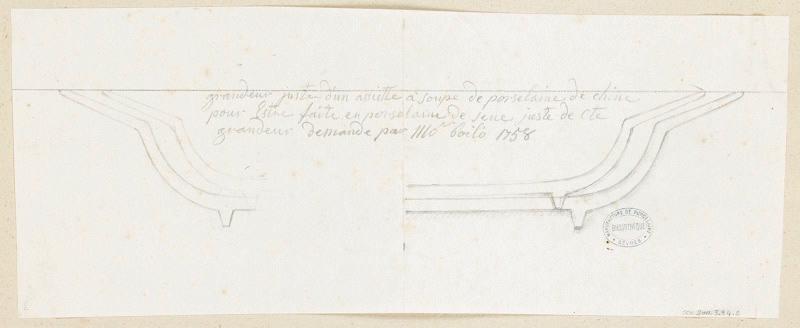 grandeur juste d'un assiette a soupe de porselaine de chine
pour Estre faite en porselaine de seve juste de cte
grandeur demande par Mor boilo 1758
MANUFACTURE DE PORCELAINE
BIBLIOTHEQUE
SEVRES